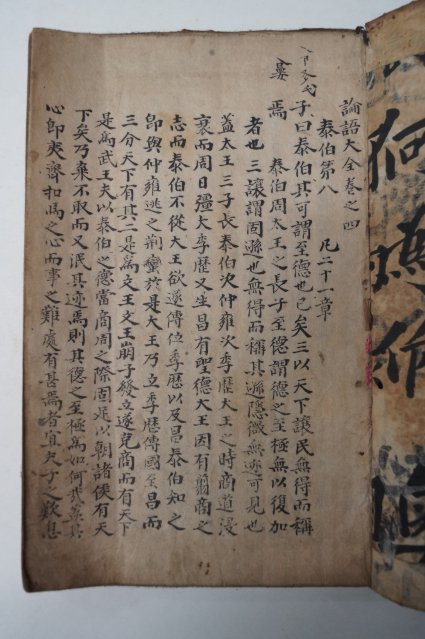 論語大全卷之四
泰伯第八 凡二十一章
子曰泰伯其可謂至德也已矣三以天下讓民無得而稱
焉 泰伯周太王之長子至德謂德之至極無以復加
者也三讓謂固遜也無得而稱其遜隱微無迹可見也
盖太王三子長泰伯次仲雍次季歷大王之時商道浸
衰而周日彊大季歷又生昌有聖德大王因有翦商之
志而泰伯不從大王欲遂傳位季歷以及昌泰伯知之
即與仲雍逃之荆蠻於是大王乃立季歷傳國至昌而
三分天下有其二是爲文王文王崩子發立遂克商而有天下
是爲武王夫以泰伯之德當商周之際固足以朝諸侯有天
下矣乃棄不取而又泯其迹焉則其德之至極爲如何哉盖其
心即夷齊扣馬之心而事之難處有甚焉者宜夫子之歎息